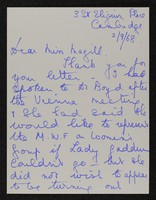 3 St Eligius Place
Cambridge
2/9/68
Dear Miss Magill,
Thank you for
your letter - I had
spoken to Dr Boyd after
the Vienna meeting
& she had said she
would like to represent
the M.W.F. a Women's
Group if Lady Jeddere
couldn't go! but she
did not wish to appear
to be turning out